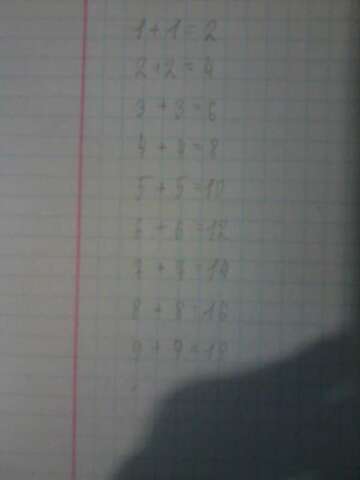 1+1=2
2+2=4
3+3=6
4+4=8
5+5=10
6+6=12
7+7=14
8+8=16
9+9=18